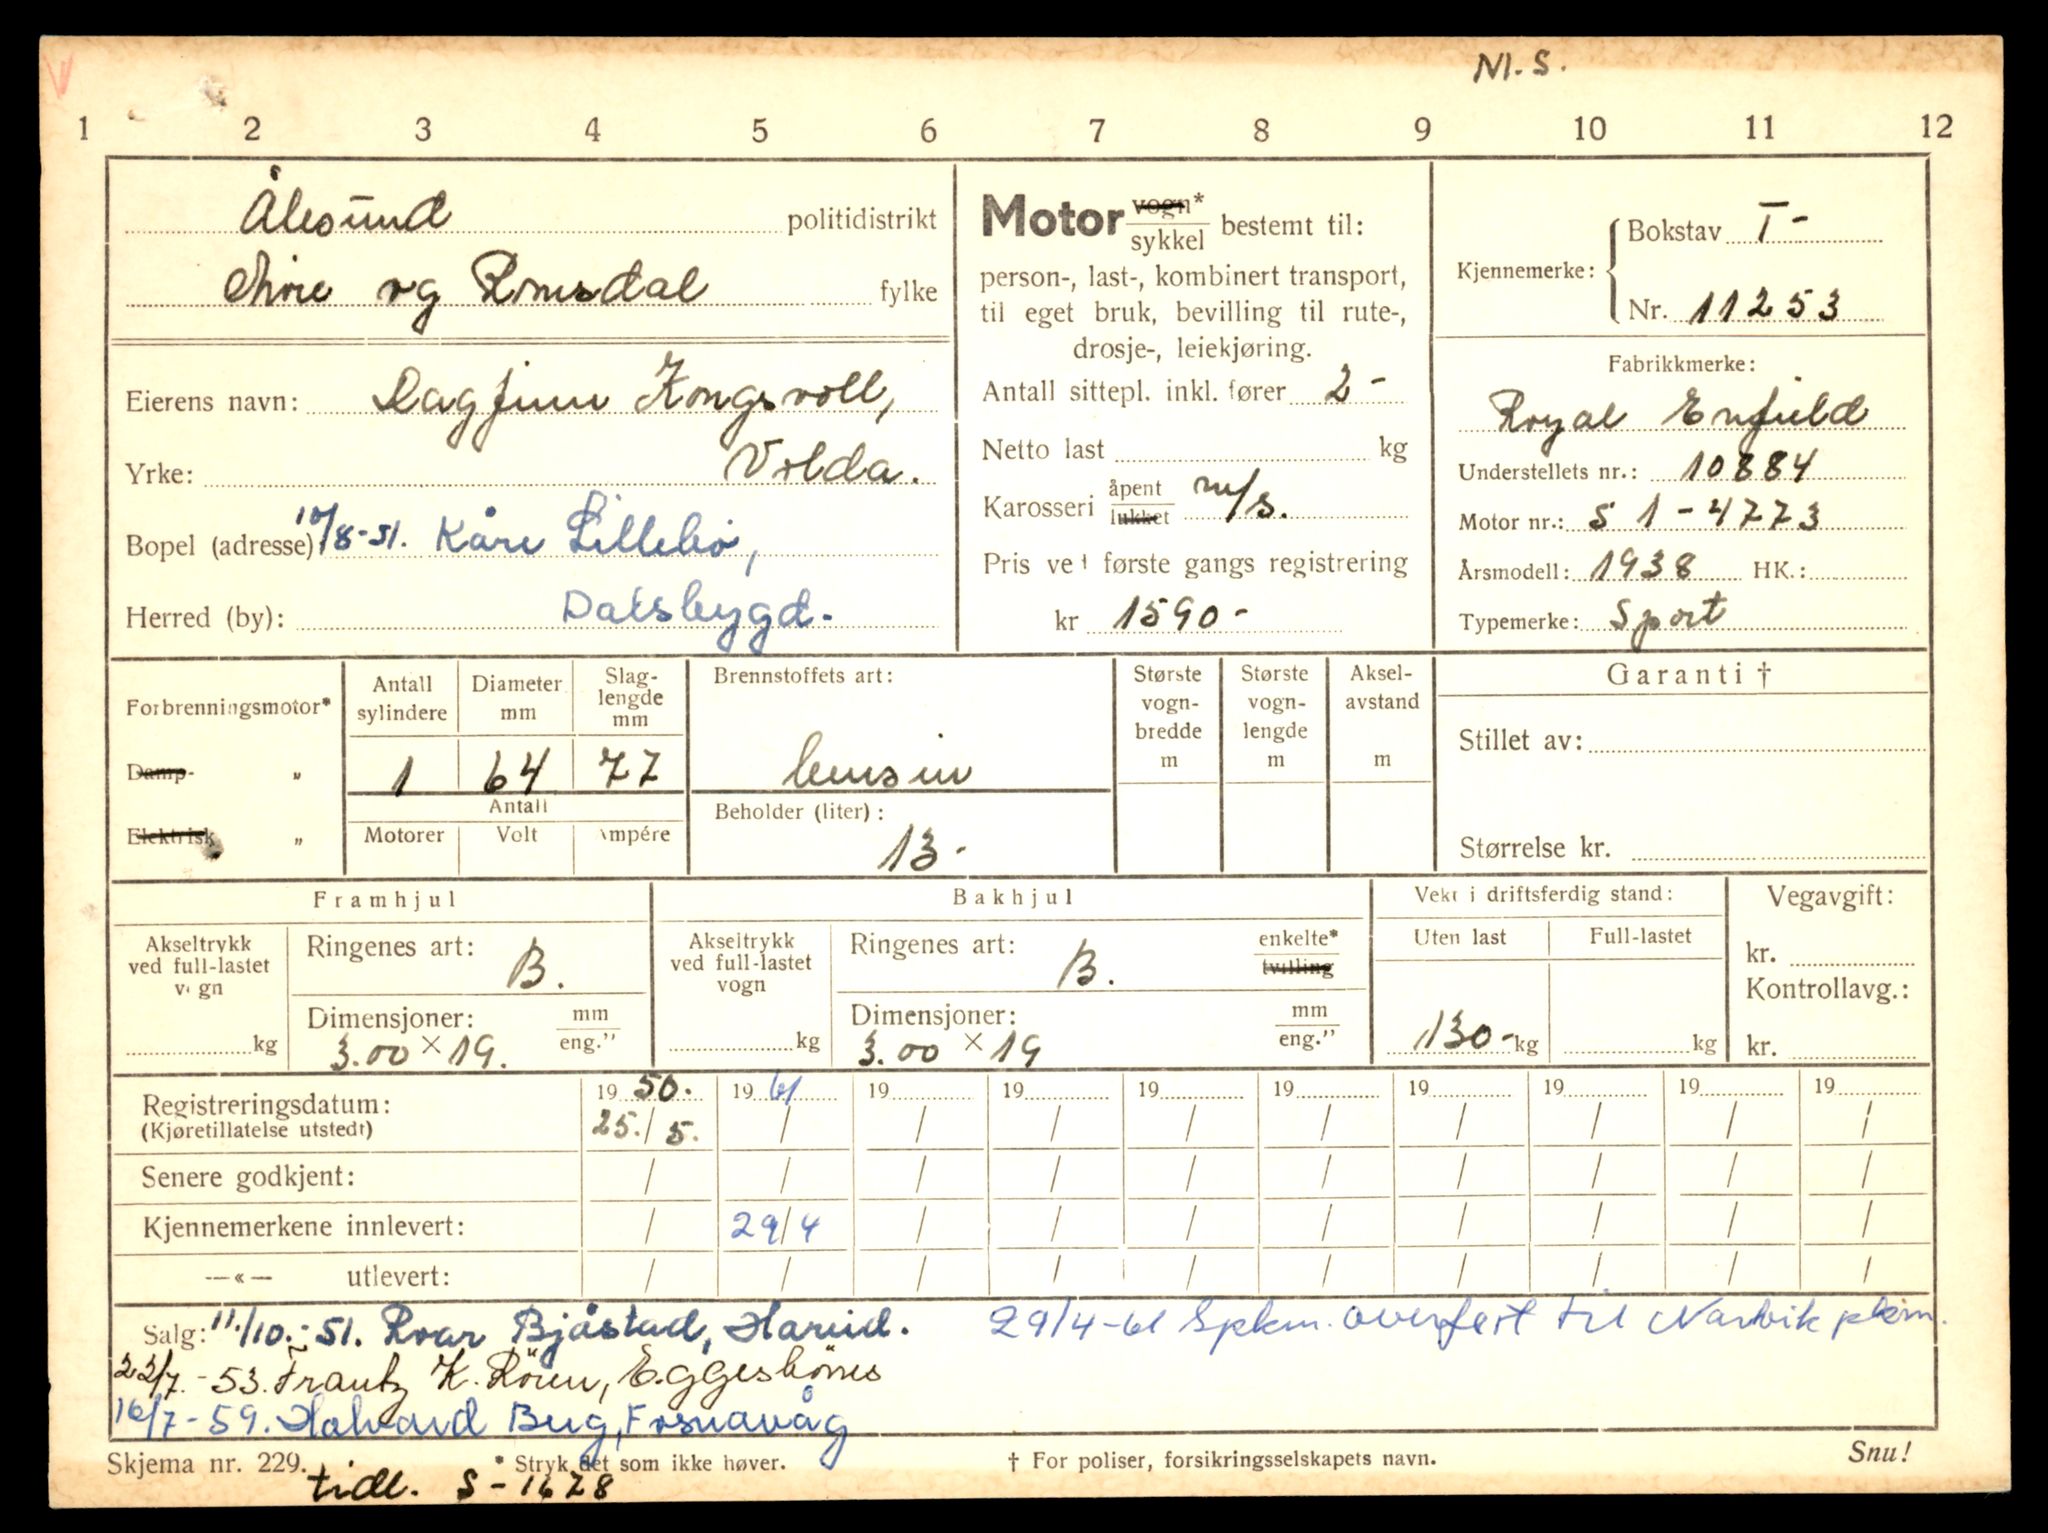 M.S.
1 2 3 4 5 6 7 8 9 10 11 12
Ålesund politidistrikt
Møre og Romsdal fylke
Eierens navn: Dagfinn Kongsvoll,
Yrke: Volda.
Bopel (adresse) 10/8-51. Kåre Lillebø,
Herred (by): Dalsbygd.
Motor vogn* / sykkel bestemt til:
person-, last-, kombinert transport,
til eget bruk, bevilling til rute-,
drosje-, leiekjøring.
Antall sittepl. inkl. fører 2-
Netto last kg
Karosseri åpent / lukket m/s.
Pris ved første gangs registrering
kr 1590-
Kjennemerke: Bokstav T-
Nr. 11253
Fabrikkmerke:
Royal Enfield
Understellets nr.: 10884
Motor nr.: S 1-4773
Årsmodell: 1938 HK.:
Typemerke: Sport
Forbrenningsmotor*
Damp- „
Elektrisk „
Antall sylindere Diameter mm Slaglengde mm
1 64 77
Antall
Motorer Volt Ampére
Brennstoffets art:
bensin
Beholder (liter):
13-
Største vognbredde m
Største vognlengde m
Akselavstand m
Garanti †
Stillet av:
Størrelse kr.
Framhjul
Akseltrykk ved full-lastet vogn
kg
Ringenes art: B.
Dimensjoner: mm / eng."
3.00 × 19.
Bakhjul
Akseltrykk ved full-lastet vogn
kg
Ringenes art: B. enkelte* / tvilling
Dimensjoner: mm / eng."
3.00 × 19
Vekt i driftsferdig stand:
Uten last Full-lastet
130- kg kg
Vegavgift:
kr.
Kontrollavg.:
kr.
Registreringsdatum: 19 50. 19 61 19 19 19 19 19 19 19 19
(Kjøretillatelse utstedt) 25./5. / / / / / / / / /
Senere godkjent: / / / / / / / / / /
Kjennemerkene innlevert: / 29/4 / / / / / / / /
—«— utlevert: / / / / / / / / / /
Salg: 11./10.-51. Roar Bjåstad, Hareid. 29/4-61 Spkm. overført til Narvik pkm.
22/7.-53. Frantz K. Røren, Eggesbönes
16/7-59. Halvard Berg, Fosnavåg
Skjema nr. 229. * Stryk det som ikke høver. † For poliser, forsikringsselskapets navn. Snu!
tidl. S-1678